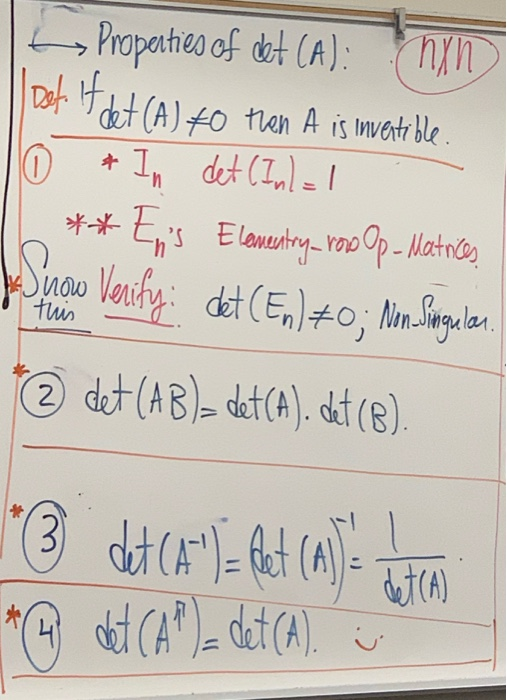 ↳ Properties of det (A): n×n
Def. If det (A) ≠ 0 then A is invertible.
① * In det (In) = 1
** En's Elementry-row Op-Matrices
* Show this Verify: det (En) ≠ 0; Non-Singular.
* ② det (AB) = det (A) . det (B).
* ③ det (A⁻¹) = (det (A))⁻¹ = 1/det (A)
* ④ det (Aᵀ) = det (A).